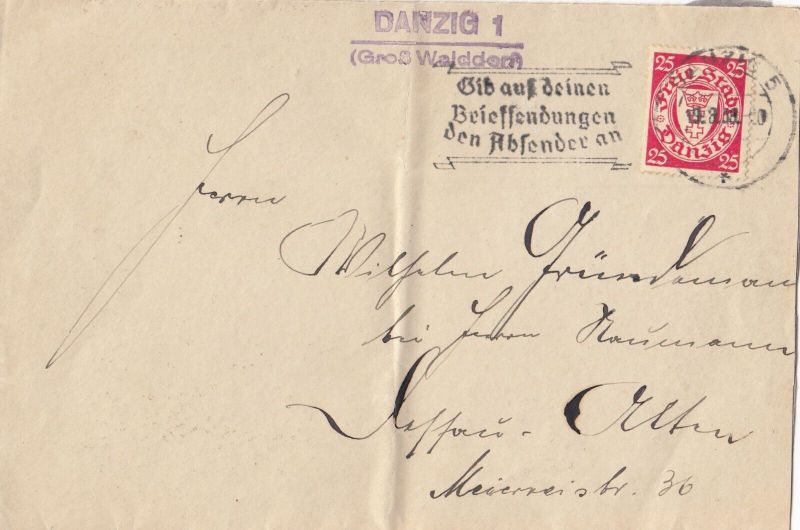 DANZIG 1
(Groß Walddorf)
Gib auf deinen
Briefsendungen
den Absender an
25 25
Freie Stadt
Danzig
25 25
Herrn
Wilhelm Gründeman
bei Herrn Naumann
Dessau - Alten
36